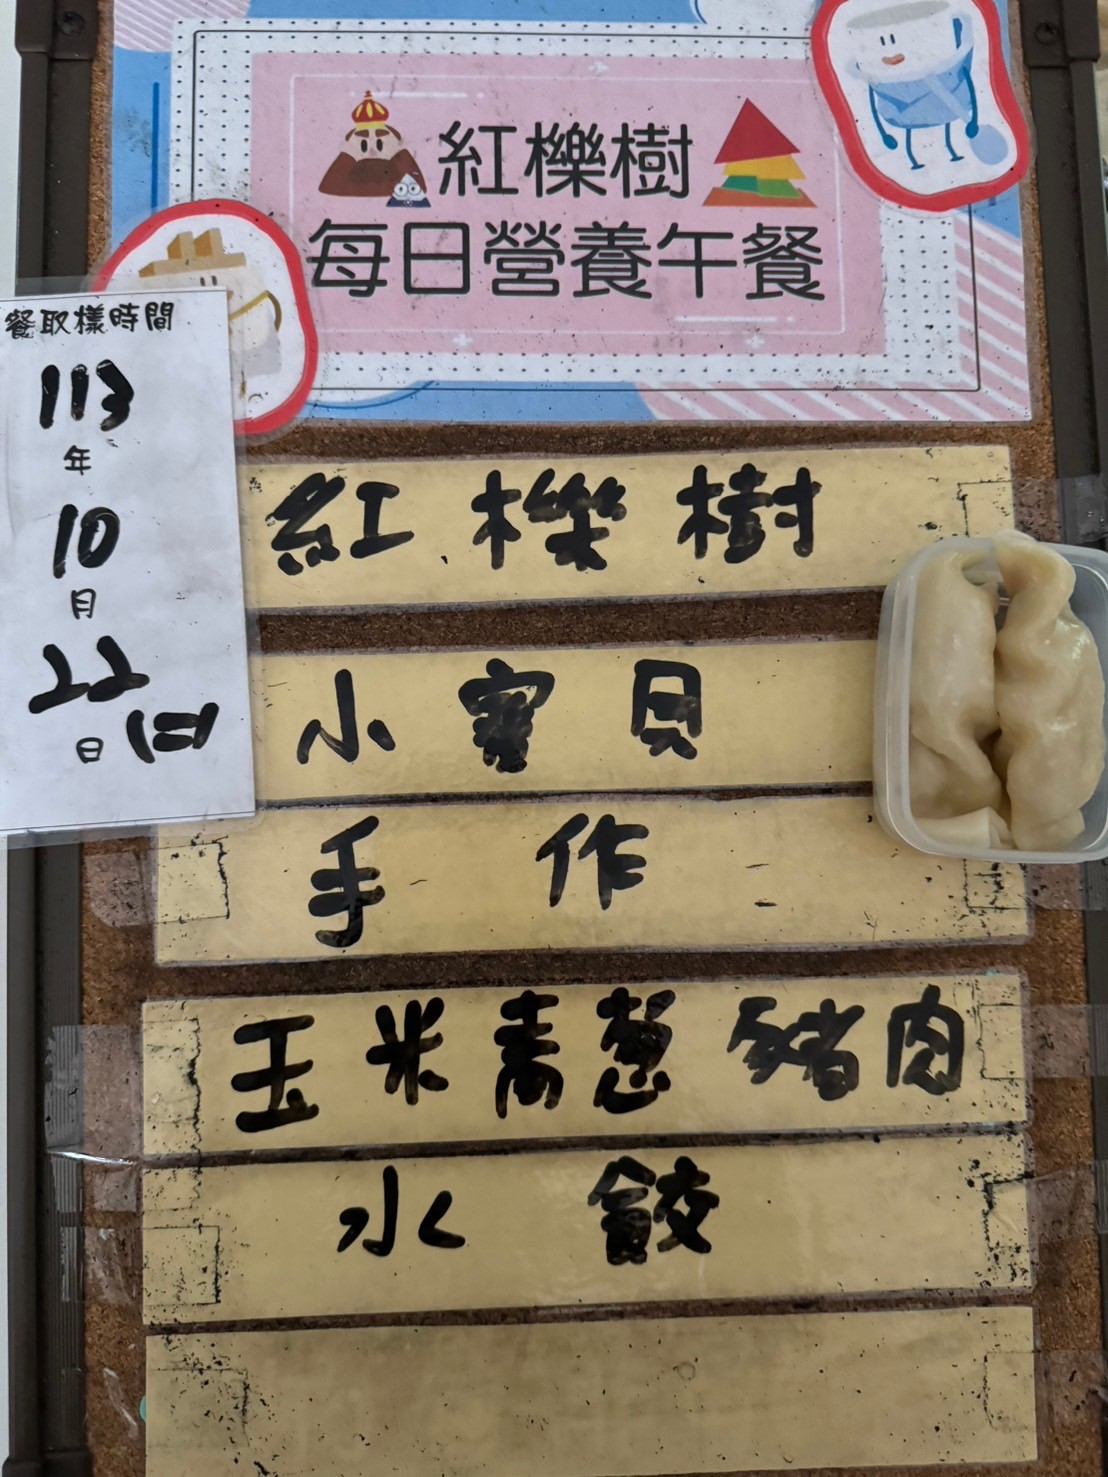 紅櫟樹
每日營養午餐
餐取樣時間
113
年
10
月
22
日
(二)
紅櫟樹
小寶貝
手作
玉米青蔥豬肉
水餃